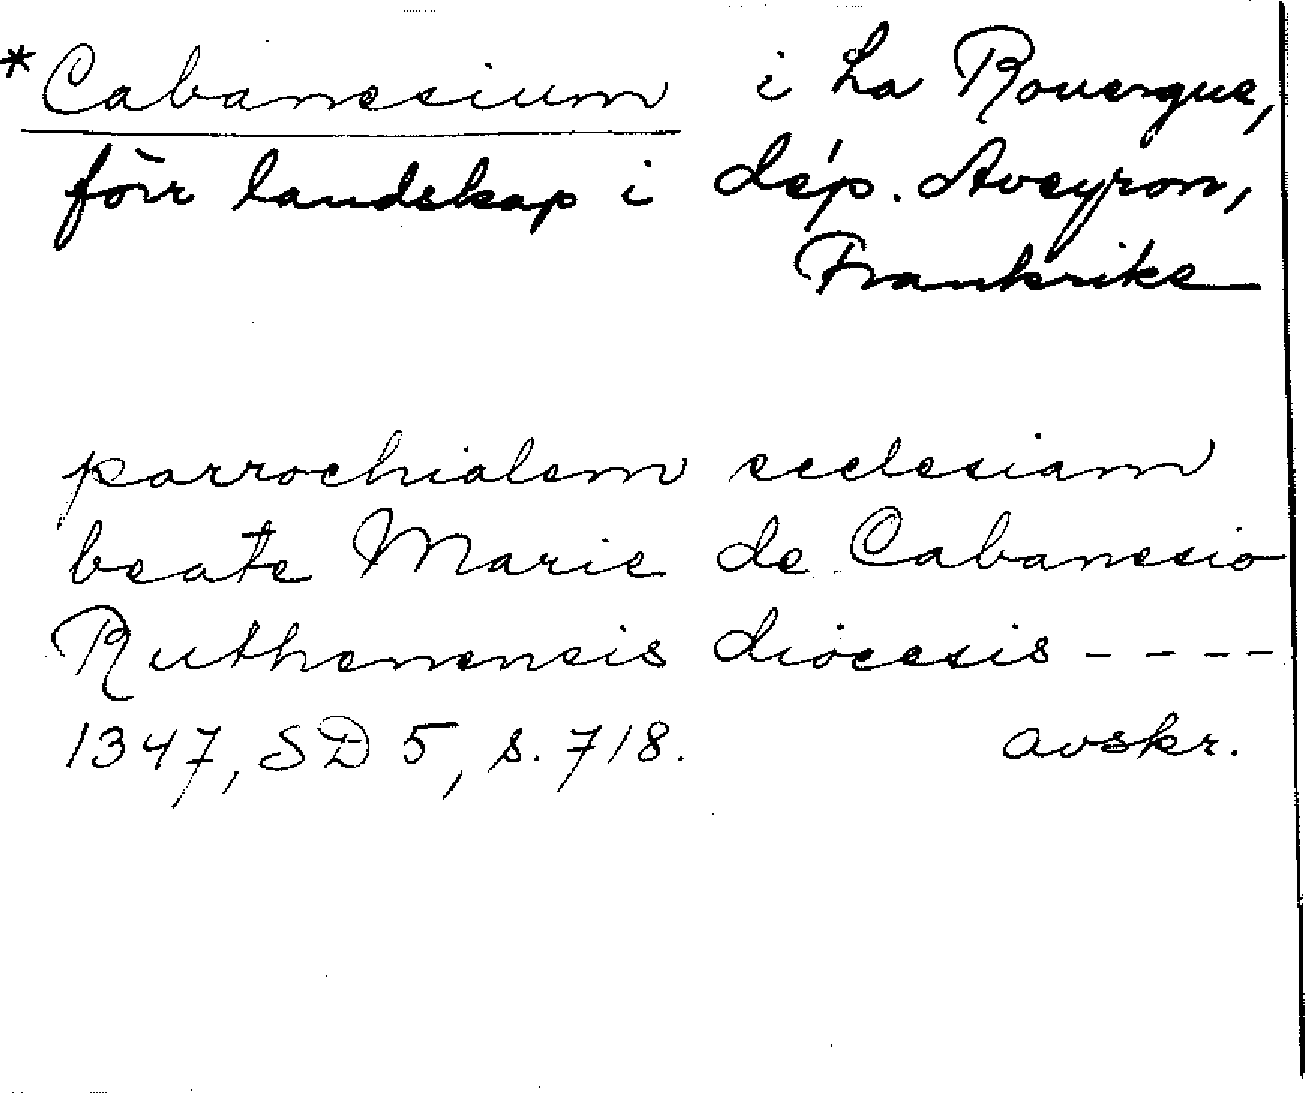 *Cabanesium i La Rouergue,
förr landskap i dép. Aveyron,
Frankrike
parrochialem ecclesiam
beate Marie de Cabanesio
Ruthenensis diocesis ----
1347, SD 5, s. 718. avskr.